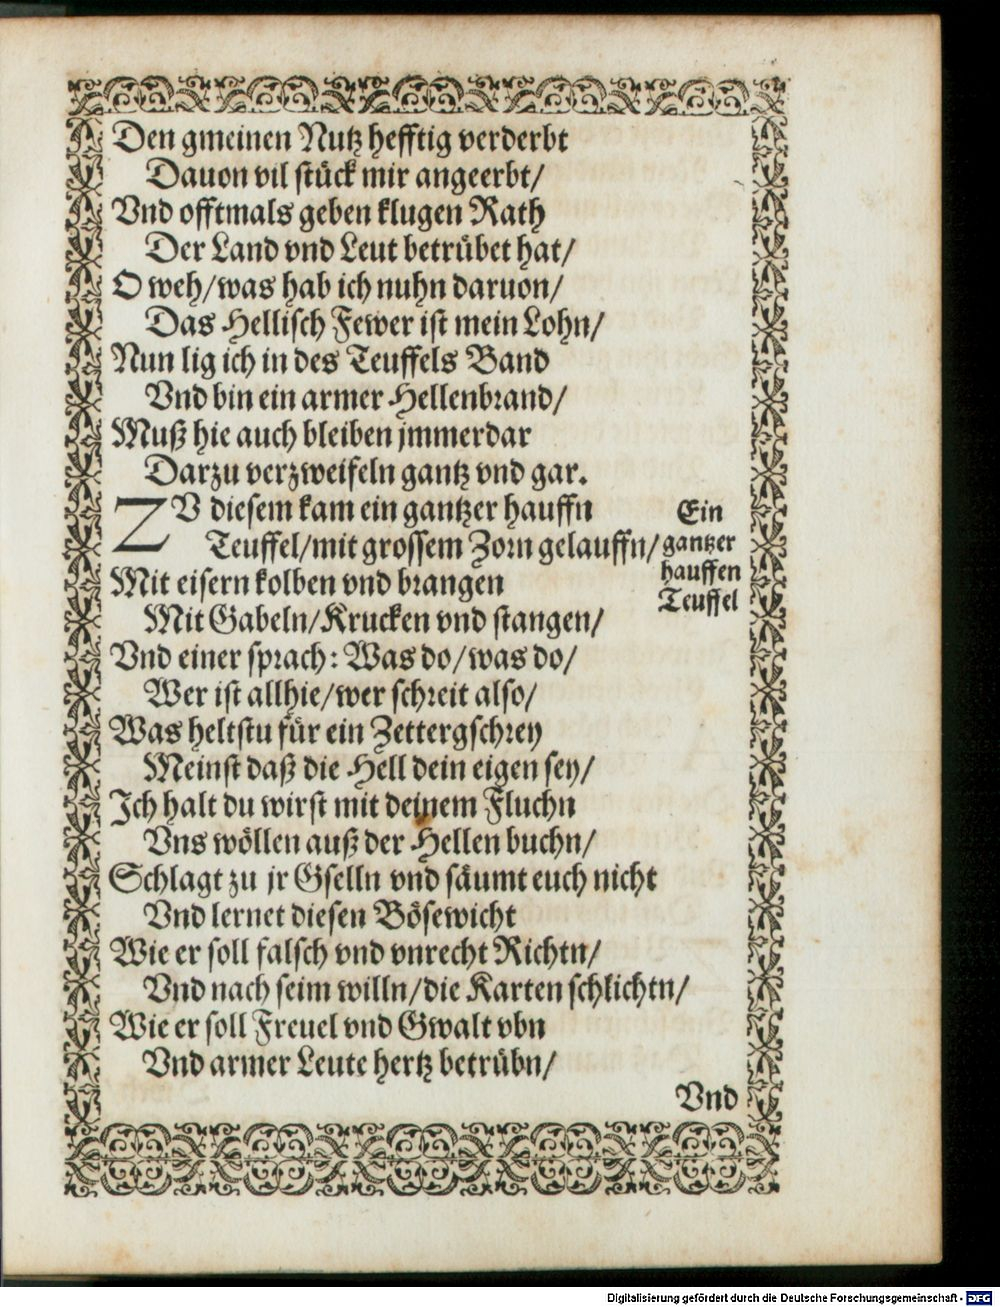 Den gmeinen Nutz hefftig verderbt
Dauon vil stück mir angeerbt/
Vnd offtmals geben klugen Rath
Der Land vnd Leut betrübet hat/
O weh/was hab ich nuhn daruon/
Das Hellisch Fewer ist mein Lohn/
Nun lig ich in des Teuffels Band
Vnd bin ein armer Hellenbrand/
Muß hie auch bleiben jmmerdar
Darzu verzweifeln gantz vnd gar.
ZV diesem kam ein gantzer hauffn
Teuffel/mit grossem Zorn gelauffn/
Ein
gantzer
hauffen
Teuffel
Mit eisern kolben vnd brangen
Mit Gabeln/Krucken vnd stangen/
Vnd einer sprach: Was do/was do/
Wer ist allhie/wer schreit also/
Was heltstu für ein Zettergschrey
Meinst daß die Hell dein eigen sey/
Ich halt du wirst mit deinem Fluchn
Vns wöllen auß der Hellen buchn/
Schlagt zu jr Gselln vnd säumt euch nicht
Vnd lernet diesen Bösewicht
Wie er soll falsch vnd vnrecht Richtn/
Vnd nach seim willn/die Karten schlichtn/
Wie er soll Freuel vnd Gwalt vbn
Vnd armer Leute hertz betrübn/
Vnd
Digitalisierung gefördert durch die Deutsche Forschungsgemeinschaft - DFG